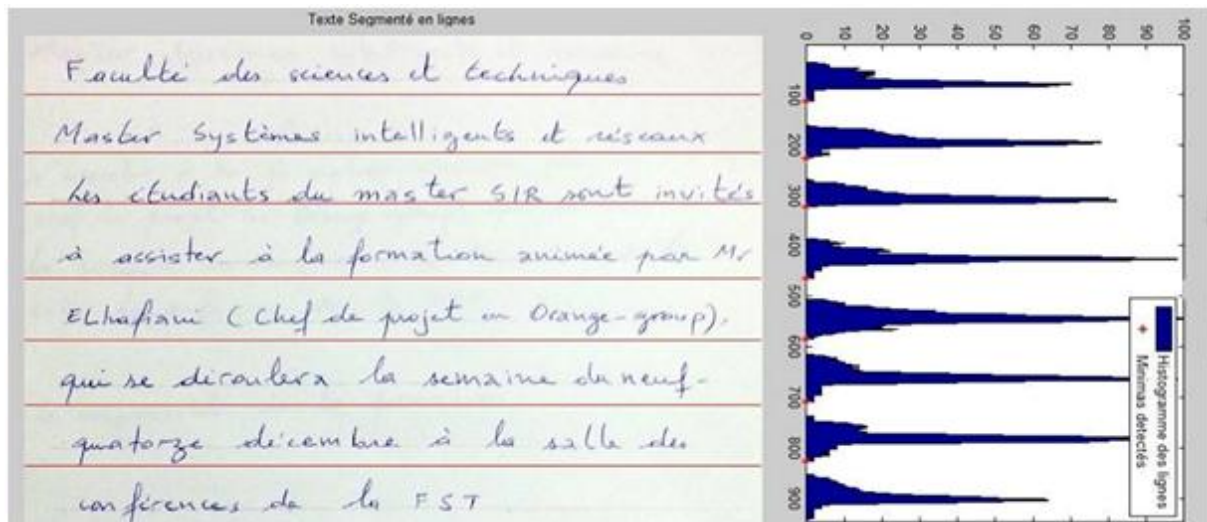 Texte Segmenté en lignes
Faculté des sciences et techniques
Master Systèmes intelligents et réseaux
Les étudiants du master SIR sont invités
à assister à la formation animée par Mr
ELhafiani (Chef de projet en Orange-group),
qui se déroulera la semaine du neuf-
quatorze décembre à la salle des
conférences de la FST
0 10 20 30 40 50 60 70 80 90 100
100
200
300
400
500
600
700
800
900
Histogramme des lignes
Minimas detectés